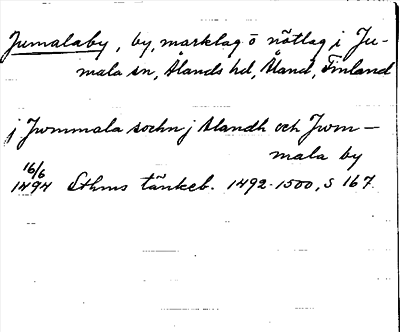 Jumalaby, by, marklag o nötlag i Ju-
mala sn, Ålands hd, Åland, Finland
j Jwmmala sochn j Alandh och Jwm-
mala by
16/6
1494 Sthms tänkeb. 1492-1500, s 167